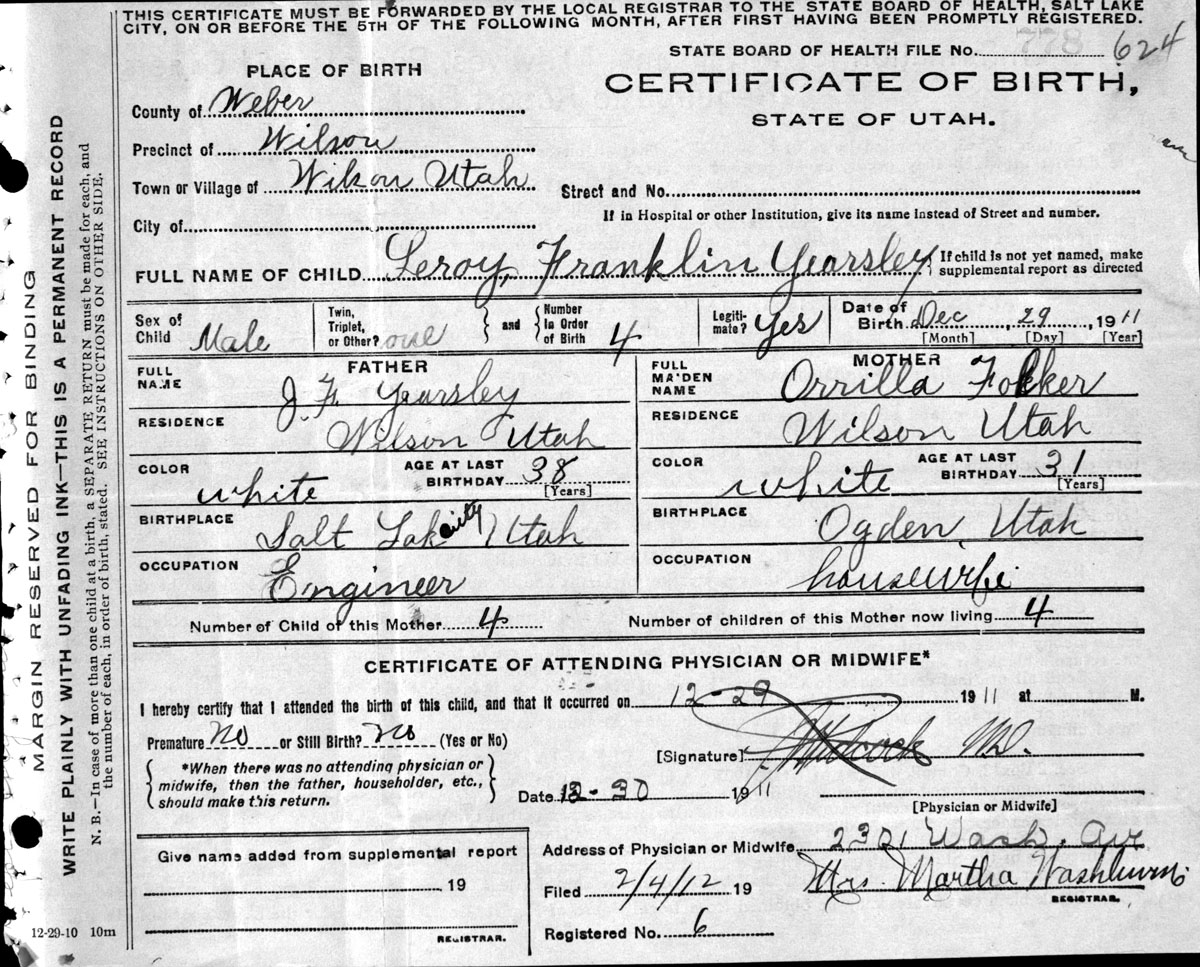 THIS CERTIFICATE MUST BE FORWARDED BY THE LOCAL REGISTRAR TO THE STATE BOARD OF HEALTH, SALT LAKE
CITY, ON OR BEFORE THE 5TH OF THE FOLLOWING MONTH, AFTER FIRST HAVING BEEN PROMPTLY REGISTERED.
STATE BOARD OF HEALTH FILE No. 778 624
CERTIFICATE OF BIRTH,
STATE OF UTAH.
PLACE OF BIRTH
County of Weber
Precinct of Wilson
Town or Village of Wilson Utah
Street and No.
If in Hospital or other Institution, give its name instead of Street and number.
City of
FULL NAME OF CHILD Leroy, Franklin Yearsley
If child is not yet named, make
supplemental report as directed
Sex of
Child Male
Twin,
Triplet,
or Other? one
and
Number
in Order
of Birth 4
Legiti-
mate? Yes
Date of
Birth Dec, 29, 1911
[Month] [Day] [Year]
FATHER
FULL
NAME J. F. Yearsley
RESIDENCE Wilson Utah
COLOR white
AGE AT LAST
BIRTHDAY 38
[Years]
BIRTHPLACE Salt Lake city Utah
OCCUPATION Engineer
MOTHER
FULL
MAIDEN
NAME Orrilla Folker
RESIDENCE Wilson Utah
COLOR white
AGE AT LAST
BIRTHDAY 31
[Years]
BIRTHPLACE Ogden, Utah
OCCUPATION housewife
Number of Child of this Mother 4
Number of children of this Mother now living 4
CERTIFICATE OF ATTENDING PHYSICIAN OR MIDWIFE*
I hereby certify that I attended the birth of this child, and that it occurred on 12-29 1911 at M.
Premature No or Still Birth? No (Yes or No)
[Signature] M.D.
*When there was no attending physician or
midwife, then the father, householder, etc.,
should make this return.
Date 12-30 1911
[Physician or Midwife]
Give name added from supplemental report
19
REGISTRAR.
Address of Physician or Midwife 2301 Wash. Ave
Filed 2/4/12 19
Mrs. Martha Washburn
REGISTRAR.
Registered No. 6
12-29-10 10m
MARGIN RESERVED FOR BINDING
WRITE PLAINLY WITH UNFADING INK—THIS IS A PERMANENT RECORD
N. B.—In case of more than one child at a birth, a SEPARATE RETURN must be made for each, and
the number of each, in order of birth, stated. SEE INSTRUCTIONS ON OTHER SIDE.